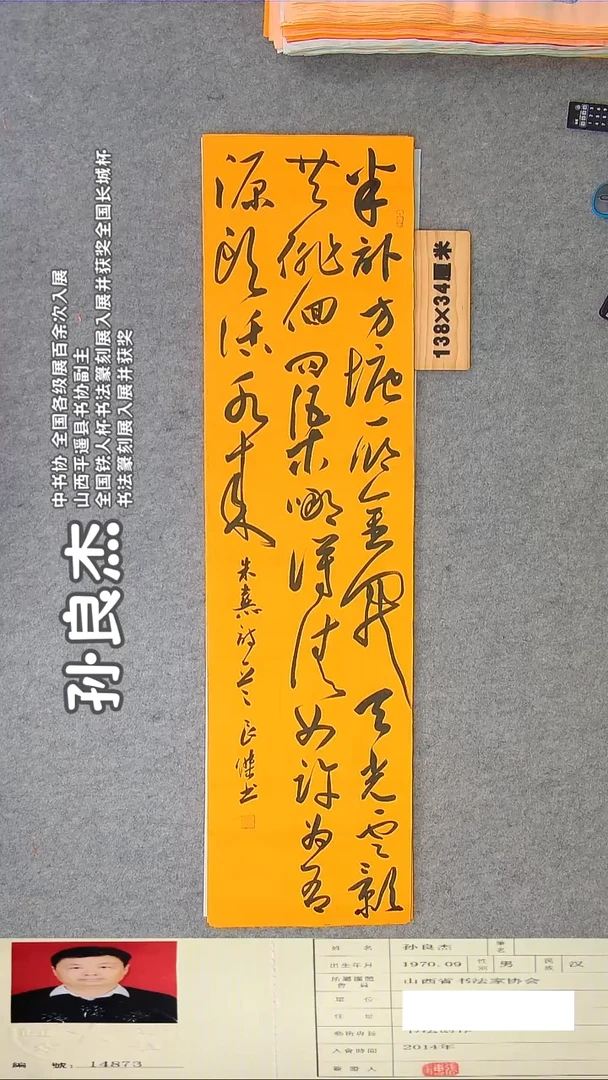 半畝方塘一鑑開天光雲影
共徘徊问渠哪得清如許為有
源頭活水來
朱熹詩一首 良傑书
138×34厘米
中书协 全国各级展百余次入展
山西平遥县书协副主
全国铁人杯书法篆刻展入展并获奖全国长城杯
书法篆刻展入展并获奖
孙良杰
姓名 孙良杰 筆名
出生年月 1970.09 性别 男 民族 汉
所屬團體會員 山西省书法家协会
單位
住址
藝術專長
入會時間 2014年
簽證人
編號：14873